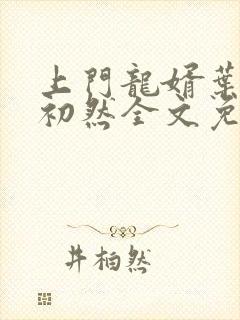 上門龍婿葉
初然全文免
井柏然